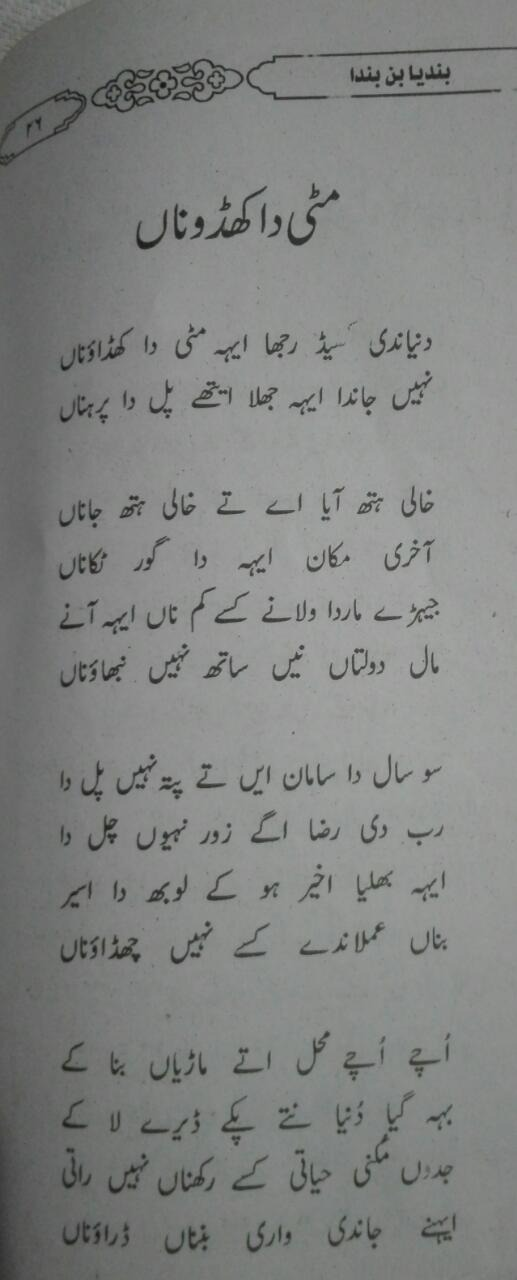 بندیا بن بندا
۲۶
مٹی دا کھڈوناں
دنیاندی کسیڈ رجھا ایہہ مٹی دا کھڈاؤناں
نہیں جاندا ایہہ جھلا ایتھے پل دا پرہناں
خالی ہتھ آیا اے تے خالی ہتھ جاناں
آخری مکان ایہہ دا گور ٹکاناں
جیہڑے ماردا ولانے کسے کم ناں ایہہ آنے
مال دولتاں نیں ساتھ نہیں نبھاؤناں
سو سال دا سامان ایں تے پتہ نہیں پل دا
رب دی رضا اگے زور نہیوں چل دا
ایہہ بھلیا اخیر ہو کے لوبھ دا اسیر
بناں عملاندے کسے نہیں چھڈاؤناں
اُچے اُچے محل اتے ماڑیاں بنا کے
بہہ گیا دُنیا نتے پکے ڈیرے لا کے
جدوں مکنی حیاتی کسے رکھناں نہیں راتی
ایہنے جاندی واری بنناں ڈراؤناں